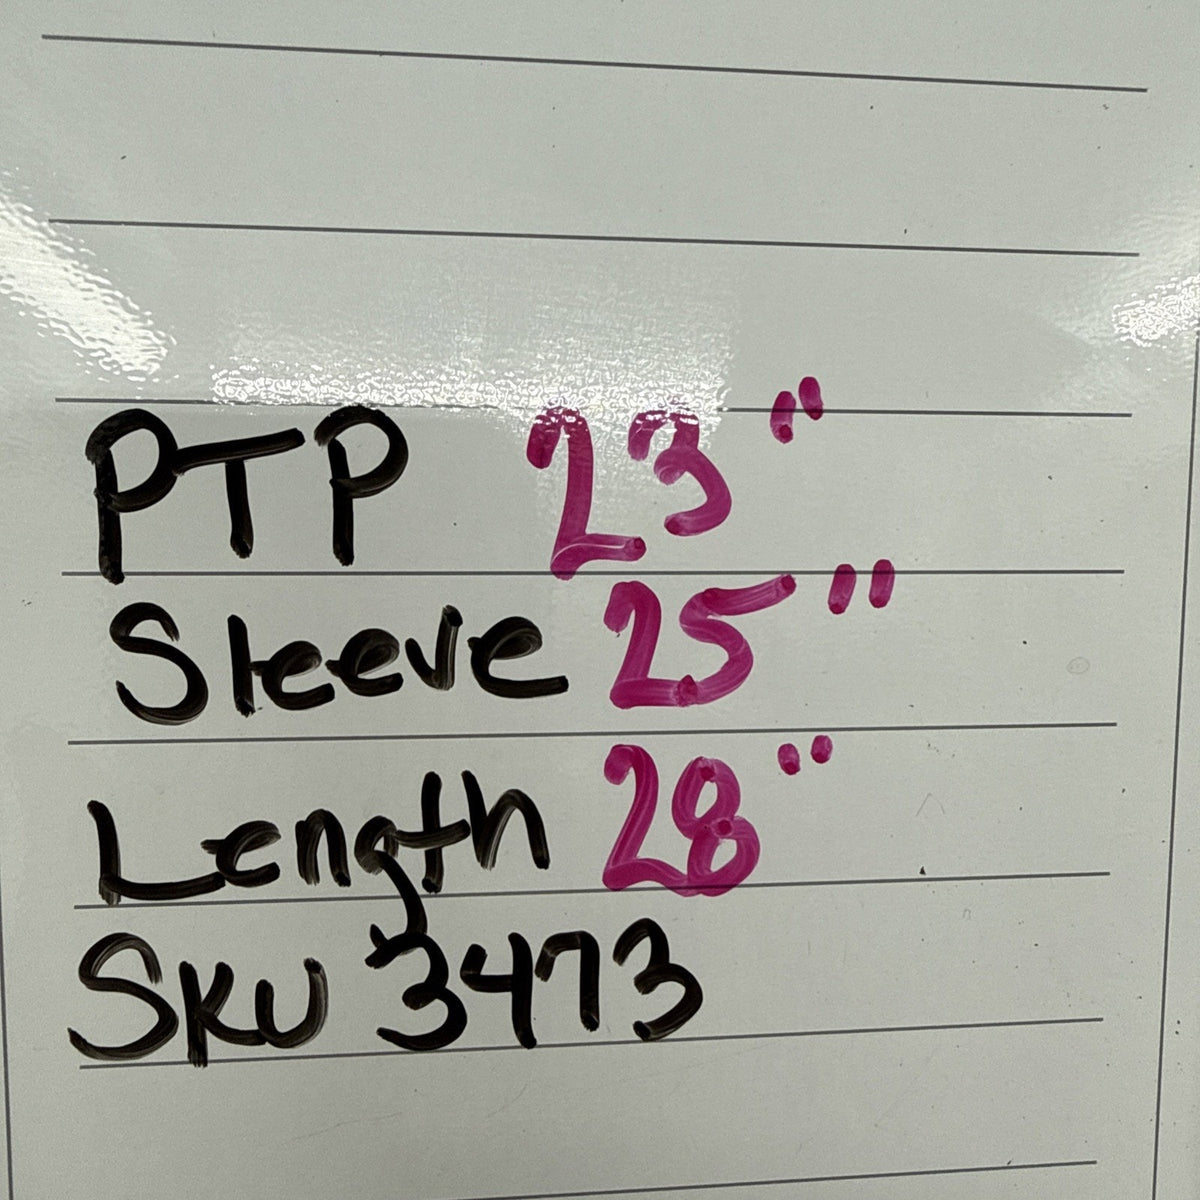 PTP 23"
Sleeve 25"
Length 28"
SKU 3473